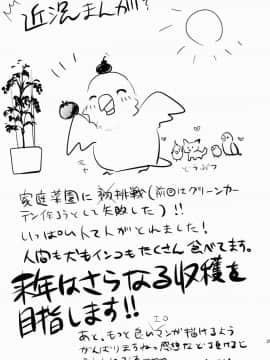 近況まんが?
どうぶつ
家庭菜園に初挑戦(前回はグリーンカー
テン作ろうとして失敗した)!!
いっぱい とれました!
人間も犬もインコもたくさん食べてます。
来年はさらなる収穫を
目指します!!
あと、もっと良いエロマンガ描けるよう
がんばりますね。感想など頂けると